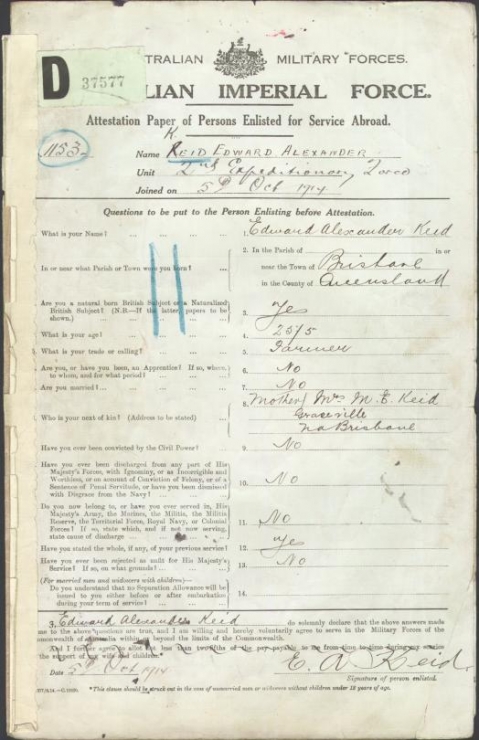 D 37577
TRALIAN MILITARY FORCES.
LIAN IMPERIAL FORCE.
Attestation Paper of Persons Enlisted for Service Abroad.
1153
K
Name REID EDWARD ALEXANDER
Unit 2nd Expeditionary Force
Joined on 5th Oct 1914
Questions to be put to the Person Enlisting before Attestation.
What is your Name? ... Edward Alexander Keid
In or near what Parish or Town were you born? ... 2. In the Parish of in or
near the Town of Brisbane
in the County of Queensland
Are you a natural born British Subject or a Naturalized
British Subject? (N.B.—If the latter, papers to be
shown.) 3. Yes
What is your age? ... 4. 25/5
What is your trade or calling? ... 5. Farmer
Are you, or have you been, an Apprentice? If so, where,
to whom, and for what period? ... 6. No
Are you married? ... 7. No
Who is your next of kin? (Address to be stated) ... 8. Mother/ Mrs M. E. Keid
Graceville
Nr Brisbane
Have you ever been convicted by the Civil Power? ... 9. No
Have you ever been discharged from any part of His
Majesty's Forces, with Ignominy, or as Incorrigible and
Worthless, or on account of Conviction of Felony, or of a
Sentence of Penal Servitude, or have you been dismissed
with Disgrace from the Navy? ... 10. No
Do you now belong to, or have you ever served in, His
Majesty's Army, the Marines, the Militia, the Militia
Reserve, the Territorial Force, Royal Navy, or Colonial
Forces? If so, state which, and if not now serving,
state cause of discharge ... 11. No
Have you stated the whole, if any, of your previous service? 12. Yes
Have you ever been rejected as unfit for His Majesty's
Service? If so, on what grounds? ... 13. No
(For married men and widowers with children)—
Do you understand that no Separation Allowance will be
issued to you either before or after embarkation
during your term of service? ... 14.
I, Edward Alexander Keid do solemnly declare that the above answers made
me to the above questions are true, and I am willing and hereby voluntarily agree to serve in the Military Forces of the
monwealth of Australia within or beyond the limits of the Commonwealth.
And I further agree to allot not less than two-fifths of the pay payable to me from time to time during my service
the support of my wife and children.
Date 5th Oct 1914 E. A. Keid.
Signature of person enlisted.
*This clause should be struck out in the case of unmarried men or widowers without children under 18 years of age.